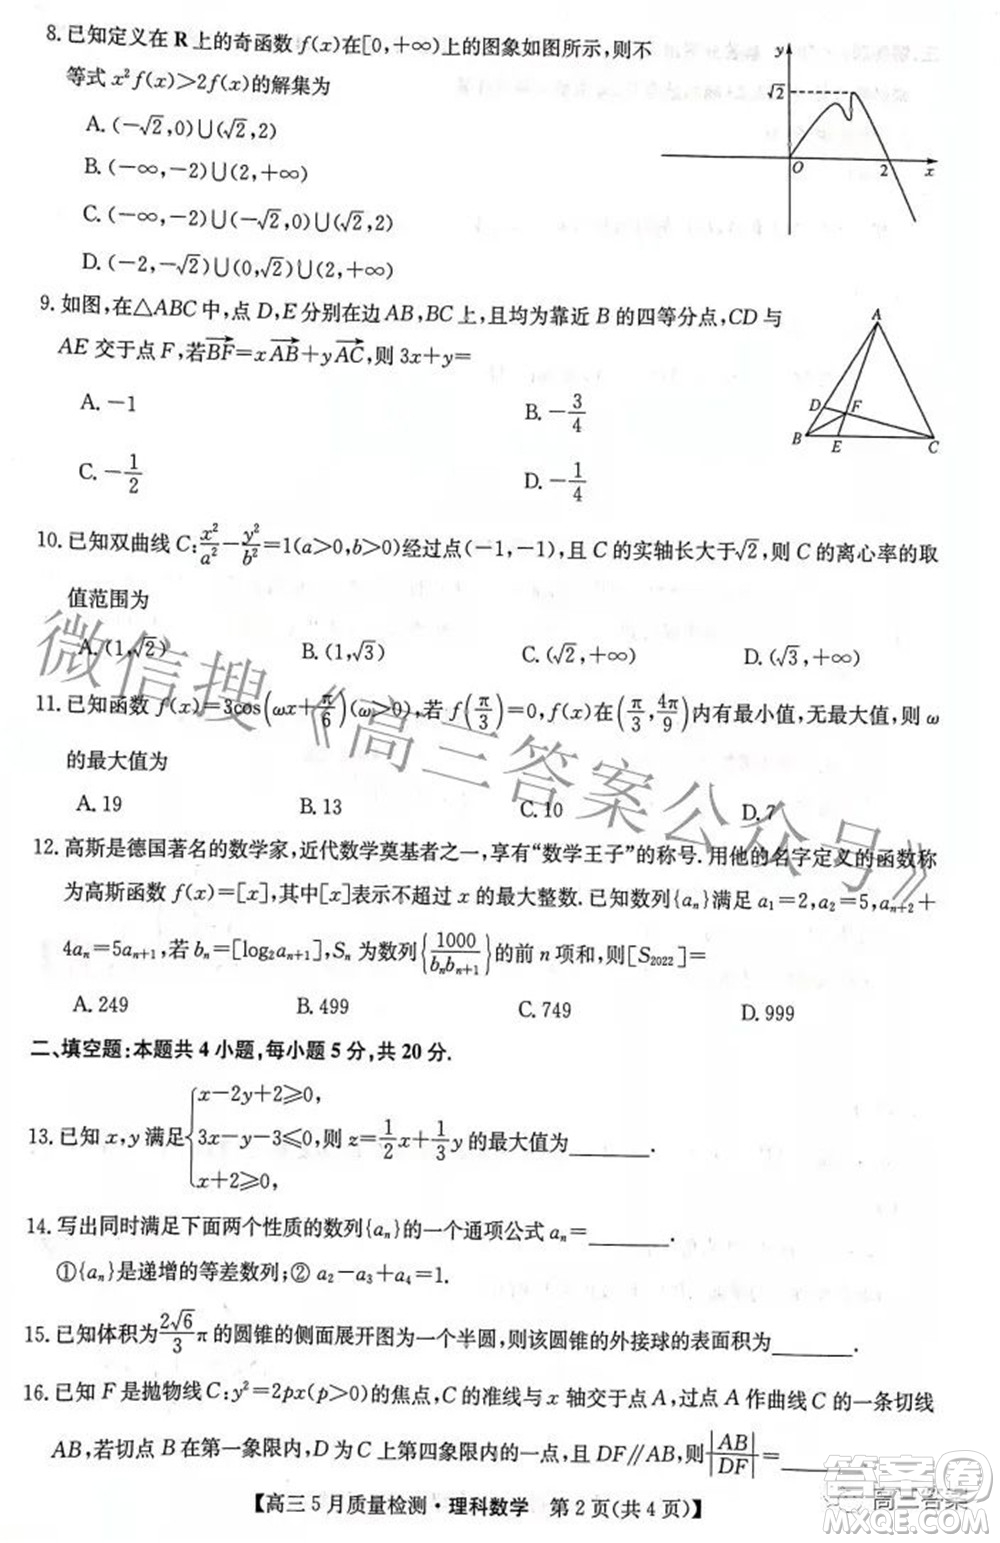 8.已知定义在 R 上的奇函数 f(x)在[0,+∞)上的图象如图所示,则不
等式 x²f(x)>2f(x)的解集为
A.(-√2,0)∪(√2,2)
B.(-∞,-2)∪(2,+∞)
C.(-∞,-2)∪(-√2,0)∪(√2,2)
D.(-2,-√2)∪(0,√2)∪(2,+∞)
y
√2
O
2
x
9.如图,在△ABC 中,点 D,E 分别在边 AB,BC 上,且均为靠近 B 的四等分点,CD 与
AE 交于点 F,若BF→=xAB→+yAC→,则 3x+y=
A.-1
B.-3/4
C.-1/2
D.-1/4
A
D
F
B
E
C
10.已知双曲线 C:x²/a²-y²/b²=1(a>0,b>0)经过点(-1,-1),且 C 的实轴长大于√2,则 C 的离心率的取
值范围为
A.(1,√2)
B.(1,√3)
C.(√2,+∞)
D.(√3,+∞)
11.已知函数 f(x)=3cos(ωx+π/6)(ω>0),若 f(π/3)=0,f(x)在(π/3,4π/9)内有最小值,无最大值,则 ω
的最大值为
A.19
B.13
C.10
D.7
12.高斯是德国著名的数学家,近代数学奠基者之一,享有“数学王子”的称号.用他的名字定义的函数称
为高斯函数 f(x)=[x],其中[x]表示不超过 x 的最大整数.已知数列{aₙ}满足 a₁=2,a₂=5,aₙ₊₂+
4aₙ=5aₙ₊₁,若 bₙ=[log₂aₙ₊₁],Sₙ 为数列{1000/(bₙbₙ₊₁)}的前 n 项和,则[S₂₀₂₂]=
A.249
B.499
C.749
D.999
二、填空题:本题共 4 小题,每小题 5 分,共 20 分.
13.已知 x,y 满足{x-2y+2≥0,
3x-y-3≤0,则 z=1/2x+1/3y 的最大值为________.
x+2≥0,
14.写出同时满足下面两个性质的数列{aₙ}的一个通项公式 aₙ=________.
①{aₙ}是递增的等差数列;② a₂-a₃+a₄=1.
15.已知体积为2√6/3π的圆锥的侧面展开图为一个半圆,则该圆锥的外接球的表面积为________.
16.已知 F 是抛物线 C:y²=2px(p>0)的焦点,C 的准线与 x 轴交于点 A,过点 A 作曲线 C 的一条切线
AB,若切点 B 在第一象限内,D 为 C 上第四象限内的一点,且 DF∥AB,则|AB|/|DF|=________.
【高三 5 月质量检测·理科数学 第 2 页(共 4 页)】
微信搜《高三答案公众号》
答案圈
高三答案
MXQE.COM